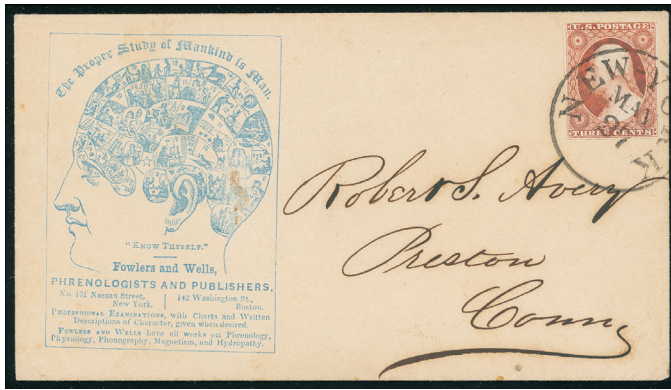 The Proper Study of Mankind is Man.
"KNOW THYSELF."
Fowlers and Wells,
PHRENOLOGISTS AND PUBLISHERS,
No. 131 Nassau Street,
New York,
142 Washington St.,
Boston.
PROFESSIONAL EXAMINATIONS, with Charts and Written
Descriptions of Character, given when desired.
FOWLERS AND WELLS have all works on Phrenology,
Physiology, Phonography, Magnetism, and Hydropathy.
U.S. POSTAGE
THREE CENTS
NEW-Y
MAY
Robert S. Avery
Preston
Conn,